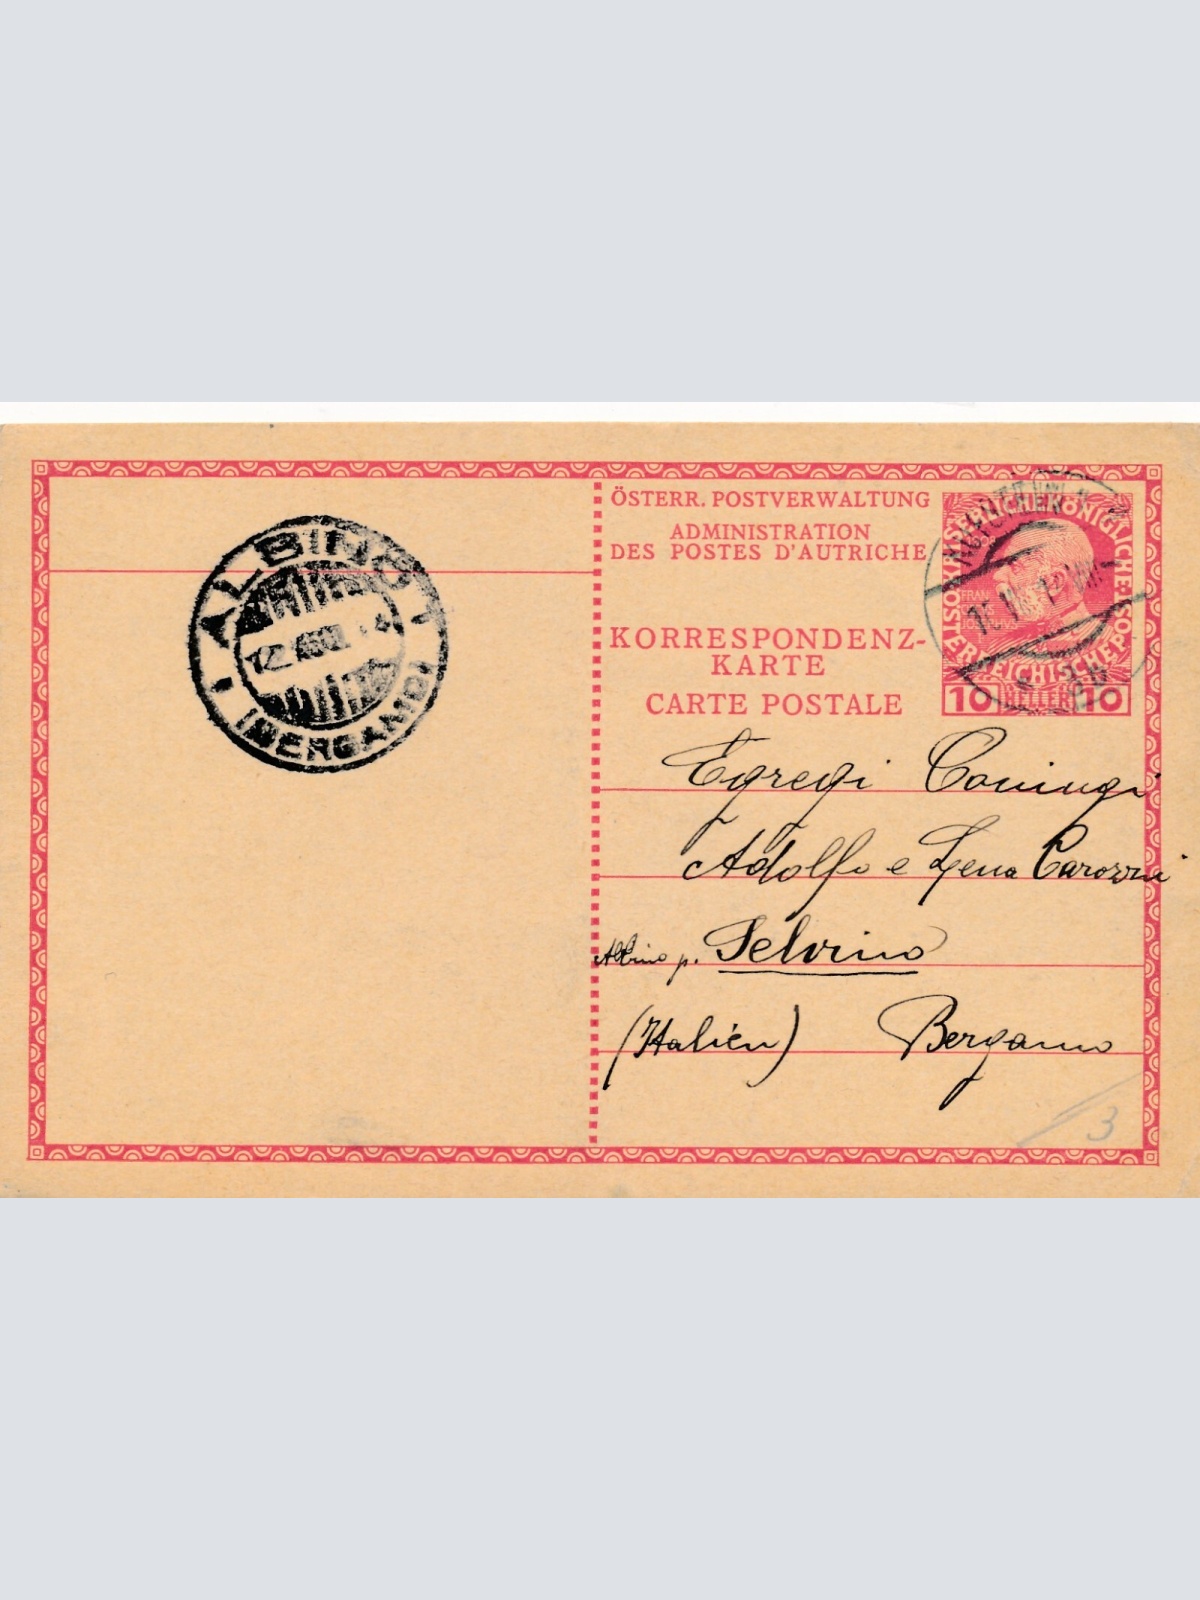 ÖSTERR. POSTVERWALTUNG
ADMINISTRATION
DES POSTES D'AUTRICHE
KORRESPONDENZ-
KARTE
CARTE POSTALE
KAISERLICHE KÖNIGLICHE
ÖSTERREICHISCHE POST
10 HELLER 10
ALBINO
(BERGAMO)
12
Egregi Coniugi
Adolfo e Lena Carozzi
Albino p. Selvino
(Italien) Bergamo
3